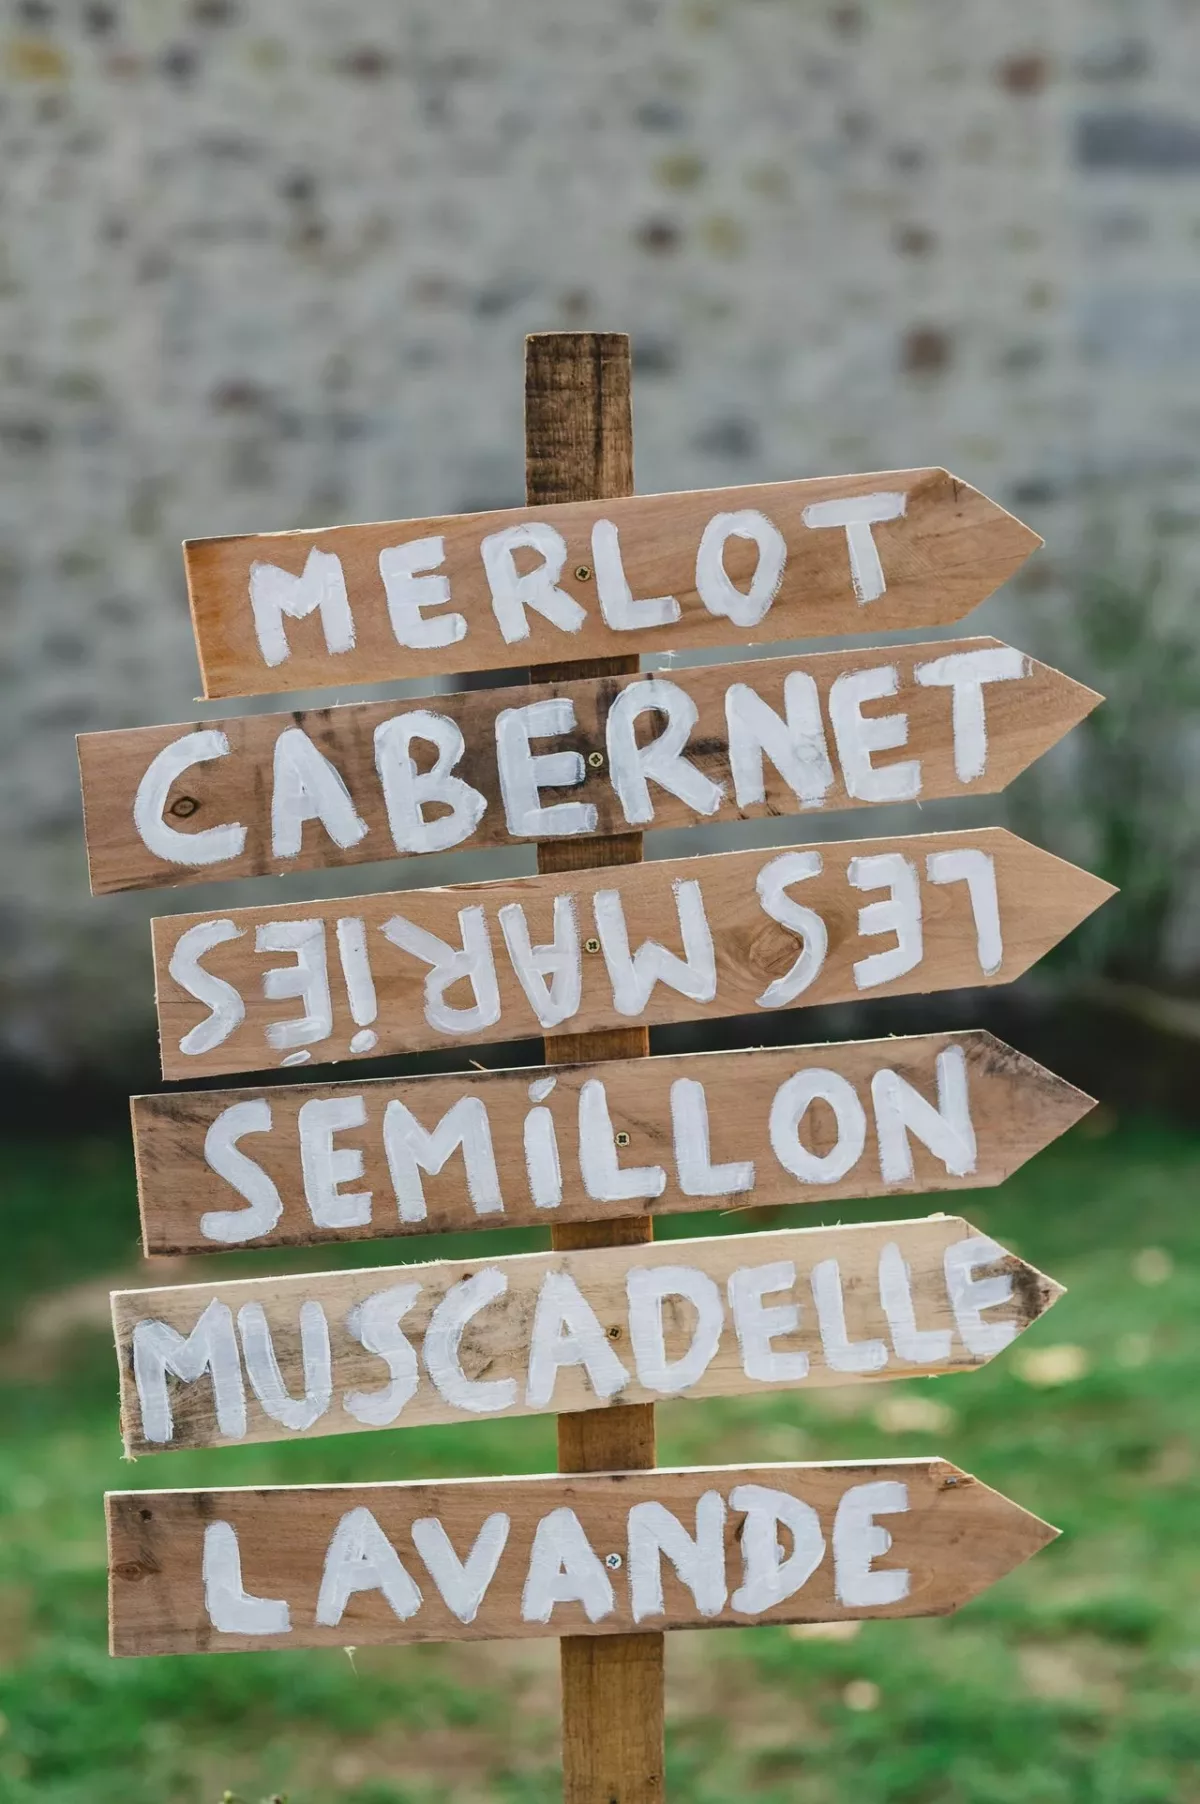 MERLOT
CABERNET
LES MARiÉS
SEMíLLON
MUSCADELLE
LAVANDE